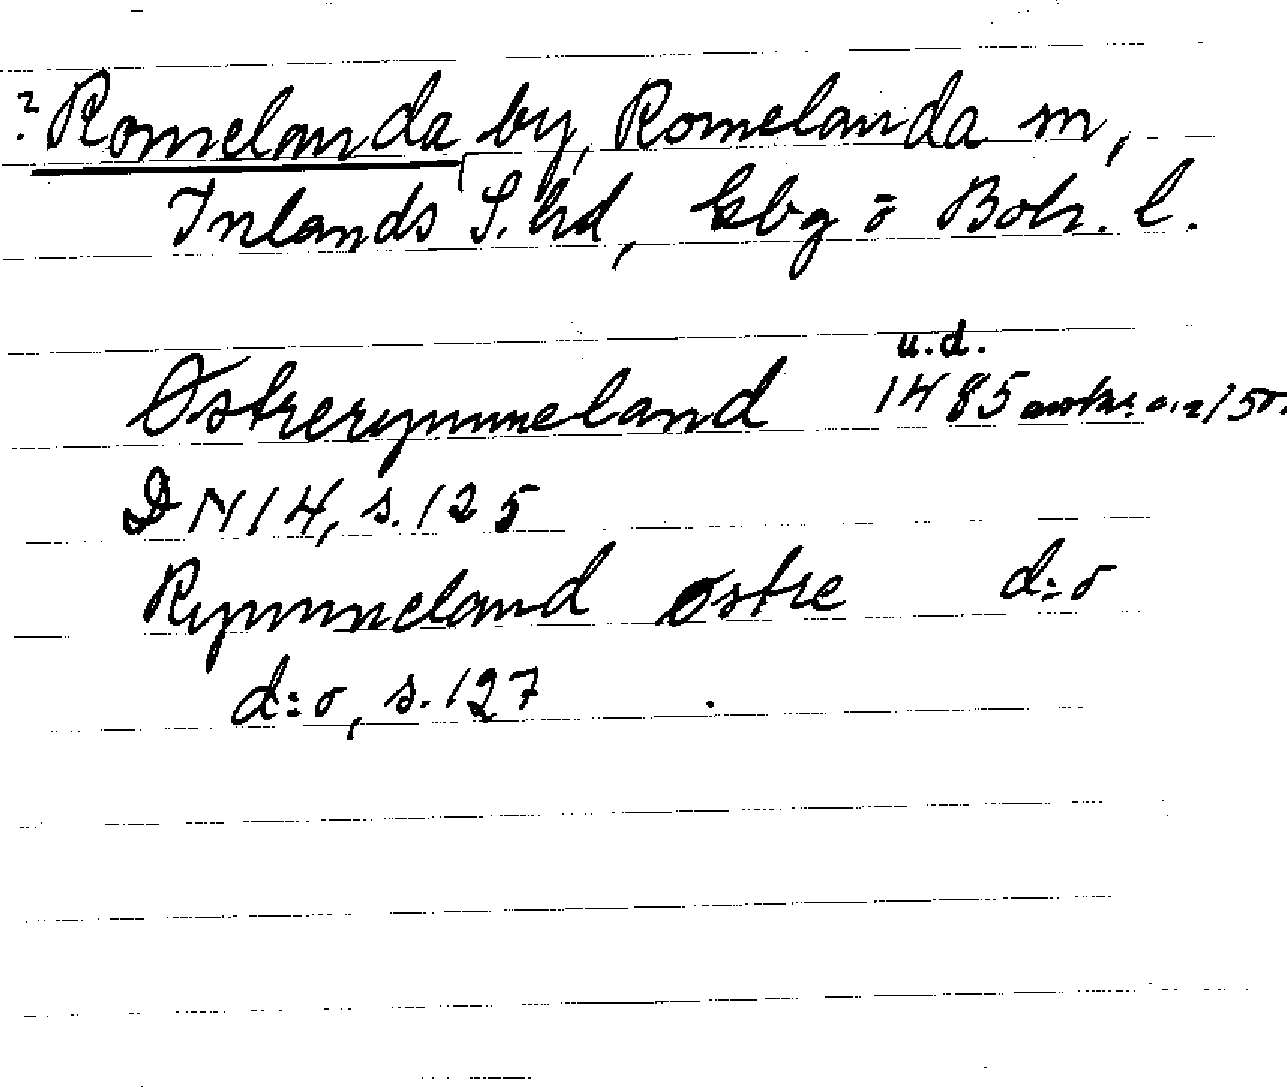 ? Romelanda by, Romelanda sn,
Inlands S. hd, Gbg o Boh. l.
u.d.
Østrerymmeland 1485 avskr. o. 1250
DN 14, s. 125
Rymmeland østre d:o
d:o, s. 127